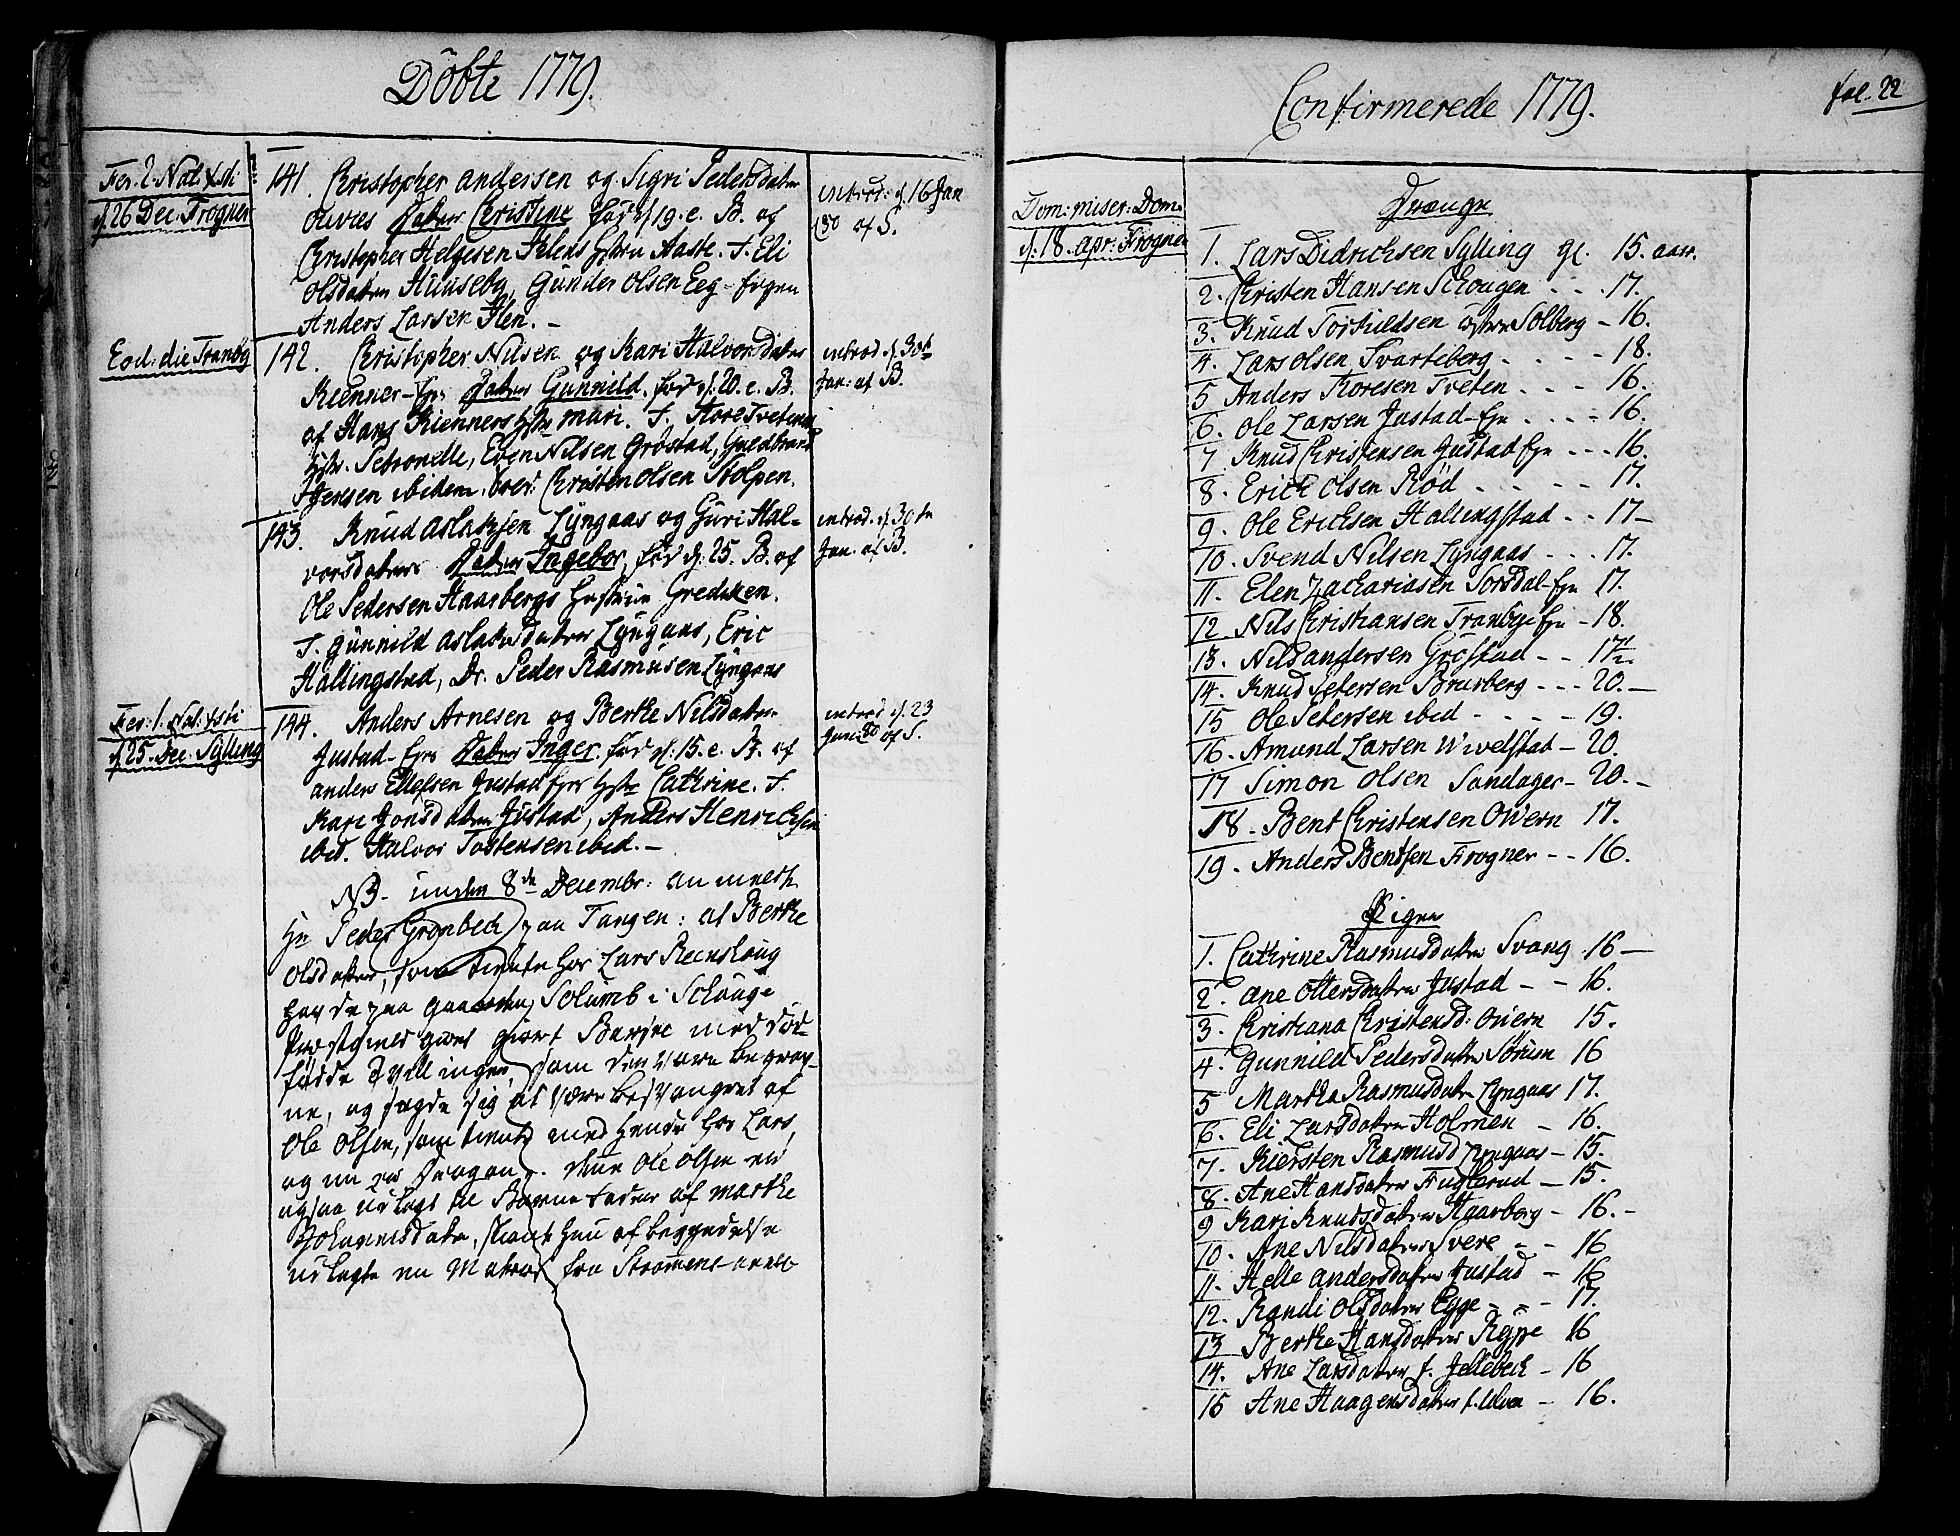 Döbte 1779.
Fer. 2. Nat: Xsti
d. 26 Dec. Frogner
141. Christopher Andersen og Sigri Pedersdatter
Datter Christine. fød d. 19. e. B. af
Christopher Helgesen Hustru Aaste. F. Eli
Olsdatter Hüuseby, Gunder Olsen Eeg-
Anders Larsen Hen. -
introd: d. 16 Jan
80 af S.
Eod: die Tranbÿ
142. Christopher Nilsen og Kari Halvorsdatter
Kienner- Datter Günnild, fød d. 20. e. B.
af Hans Kienners Hustru Mari. F. Store Tveten
Hustr. Petronelle, Even Nilsen Gröstad, Guldbrand
Jensen ibidem. Over: Christen Olsen Stolpen.
introd d. 30te
Jan: af B.
143. Knud Aslaksen Lyngaas og Guri Hal-
vorsdatters Datter Ingebor, fød d. 25. B. af
Ole Pedersen Haarbergs Hustrue Gredken.
F. Günnild Aslaksdatter Lyngaas, Eric
Hallingstad, Dr. Peder Rasmüsen Lÿngaas
introd. d. 30 te
Jan. af B.
Fer: 1. Nat: Xsti
d. 25. Dec. Sylling
144. Anders Arnesen og Berthe Nilsdatter
Justad- Datter Inger. fød d. 15. e. B. af
Anders Ellefsen Justad Hustr Cathrine. F.
Kari Jonsdatter Justad, Anders Henrichsen
ibid. Halvor Tostensen ibid. -
introd d. 23
Jan: 80 af S.
NB. under 8de Decembr: anmelte
Hr Peder Grønbech paa Tangen: at Berthe
Olsdatter, som tiente hos Lars Reenskoug
havde paa Gaarden Solumb i Schouge
Præstegield giort Barsel med død-
fødde Tvillinger, som der vare begrav-
ne, og sagde sig at være besvangret af
Ole Olsen, som tiente med hende hos Lars,
og nu er Dragon. Denne Ole Olsen er
ogsaa udlagt til Barne Fader af Marthe
Johannesdatter, skiønt hun af begyndelse
udlagte en Matros fra Strømsøe
Confirmerede 1779.
fol. 22
Dom: miser: Dom.
d. 18. Apr: Frogner
Drenge
1. Lars Didrichsen Sylling gl. 15. aar.
2. Christen Hansen Schougen - - . 17.
3. Knud Torkildsen Solberg - 16.
4. Lars Olsen Svarteberg - - - - 18.
5 Anders Toresen Tveten - - - 16.
6. Ole Larsen Justad - - - 16.
7. Knud Christensen Justad - - - 16.
8. Erich Olsen Röd - - - - 17.
9. Ole Erichsen Hallingstad - - 17 -
10. Svend Nilsen Lyngaas - - - 17.
11. Elen Zachariasen Sørsdal- 17.
12 Nils Christiansen Tranbye - 18.
13. Nils Andersen Gröstad - - 17 1/2.
14. Knud Petersen Bruxberg - - - 20. -
15 Ole Petersen ibid - - - - 19.
16. Amund Larsen Wivelstad - 20.
17 Simon Olsen Sandager - 20. -
18. Bent Christensen Oivern 17.
19. Anders Bentsen Frogner - - 16.
Piger
1. Cathrine Rasmusdatter Svang 16 -
2. Ane Ottersdatter Justad - - 16.
3. Christiana Christensd: Oivern 15.
4. Gunnild Pedersdatter Sörum 16
5 Martha Rasmusdatter Lyngaas 17.
6. Eli Larsdatter Holmen - 16.
7. Kiersten Rasmusd Lyngaas - 15.
8. Ane Hansdatter Fuglerud - 15.
9 Kari Knudsdatter Haarberg - 16. -
10. Ane Nilsdatter Svere - - 16
11. Helle Andersdatter Justad - 16
12. Randi Olsdatter Egge - - - 17.
13 Berthe Hansdatter Rÿpe 16
14. Ane Larsdatter f. Jellebeck - 16
15 Ane Haagensdatter - 16.